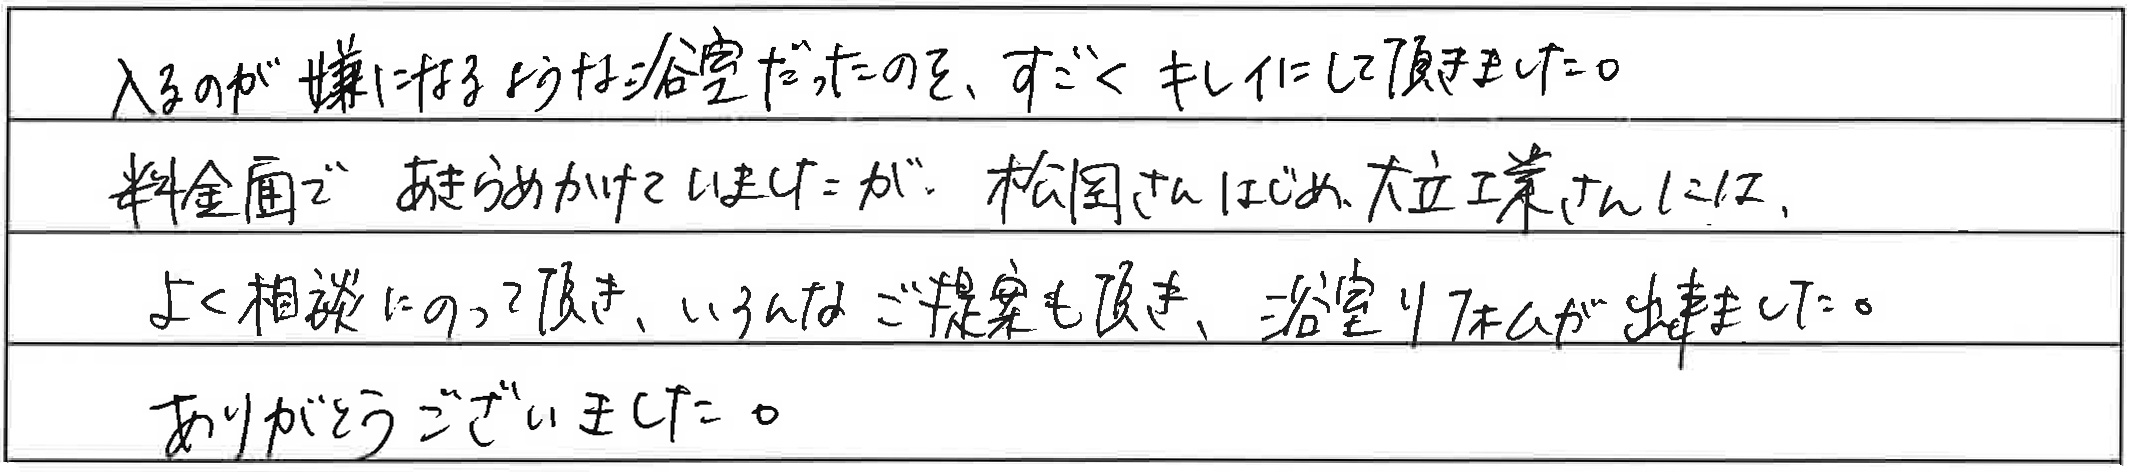 入るのが嫌になるような浴室だったのを、すごくキレイにして頂きました。
料金面であきらめかけていましたが、松岡さんはじめ、大立工業さんには、
よく相談にのって頂き、いろんなご提案も頂き、浴室リフォムが出来ました。
ありがとうございました。